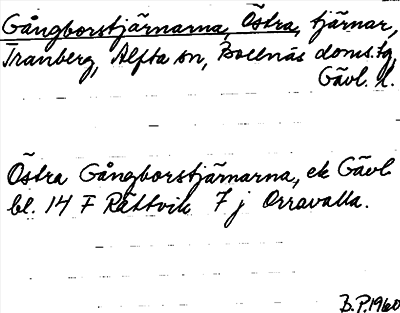 Gångborstjärnarna, Östra, tjärnar,
Tranberg, Alfta sn, Bollnäs doms.tg,
Gävl. l.
Östra Gångborstjärnarna, ek Gävl.
bl. 14 F Rättvik 7 j Orravalla.
B.P. 1960